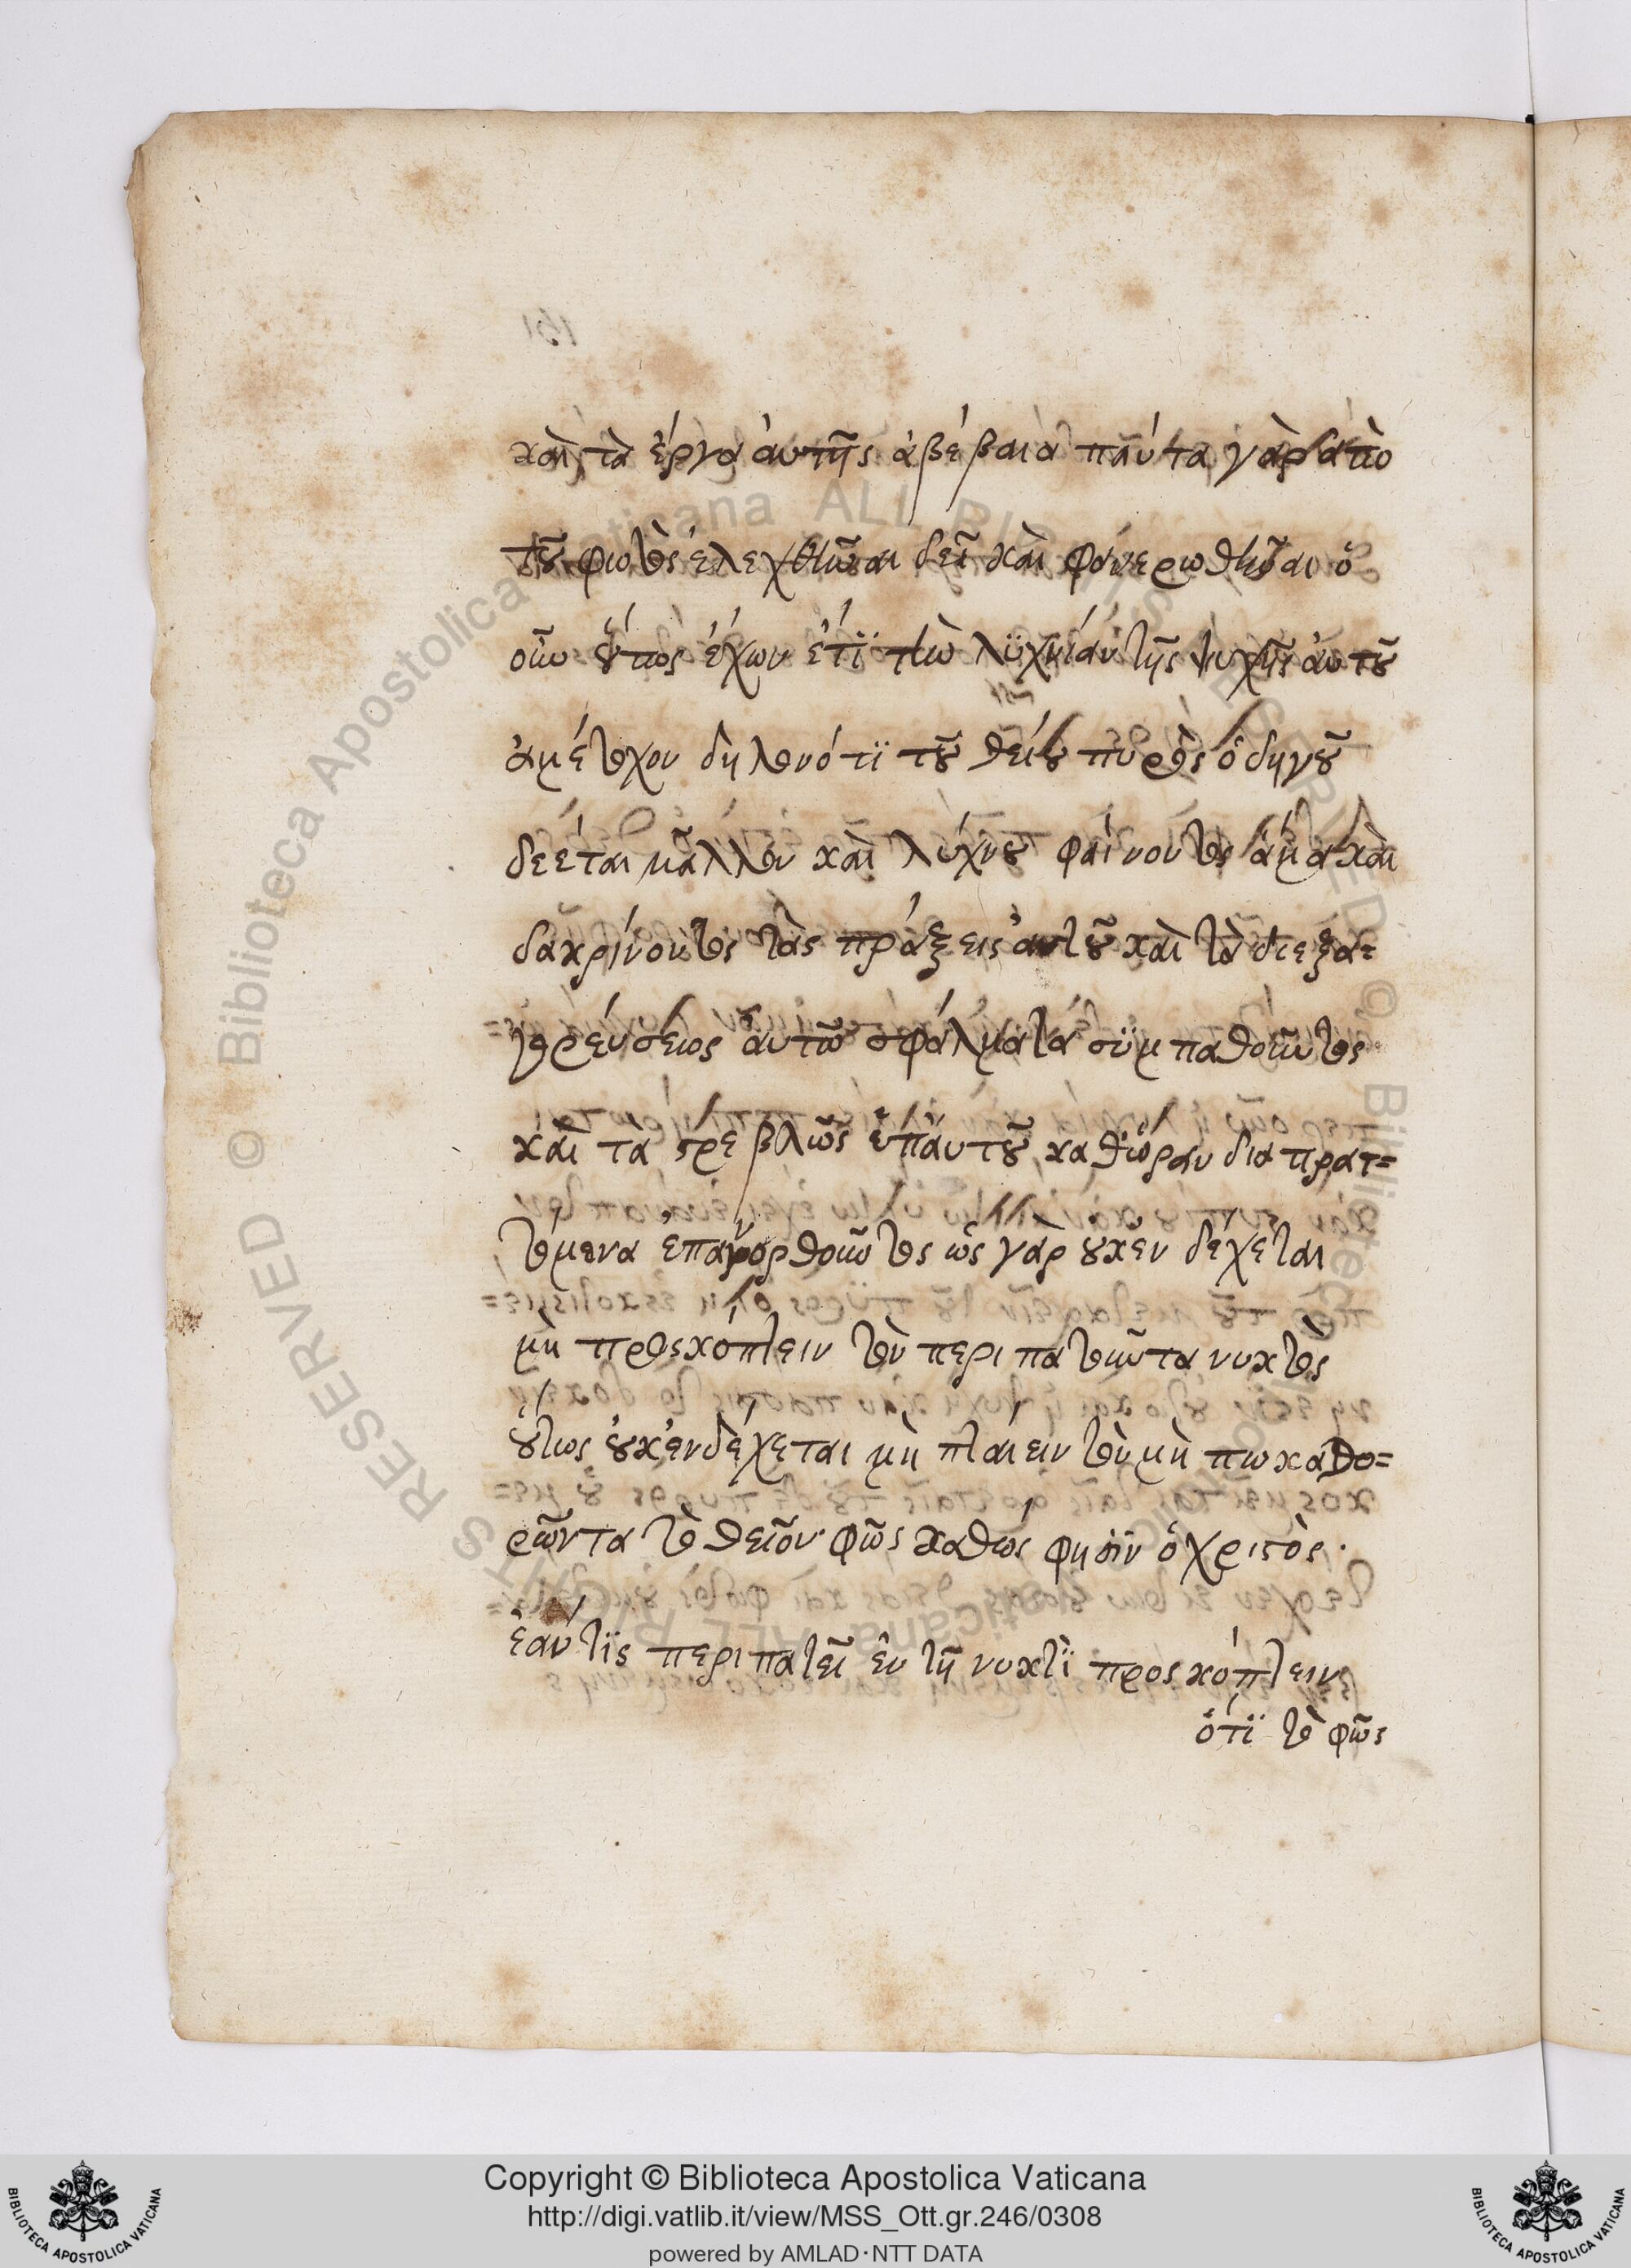 καὶ τὰ ἔργα ἀυτῆς ἀβέβαια πάντα γὰρ ἀπο
τοῦ φωτὸς ἐλεχθῆναι δεῖ καὶ φανερωθῆναι ὁ
οὖν οὕπως ἔχων ἔτϊ τὴν λϋχνίαν τῆς ψυχῆς ἀυτοῦ
ἀμέτοχον δηλονότϊ τοῦ θείου πυρὸς ὁδηγοῦ
δεέται μᾶλλον καὶ λύχνου φαίνοντος ἅμα καὶ
δακρίνοντος τὰς πράξεις ἀυτοῦ καὶ τὰ διεξα=
γορέυσεως ἀυτῶ σφάλματα σϋμπαθοῦντος
καὶ τὰ στρεβλῶς ὑπ ἀυτοῦ καθώραν διαπρατ=
τόμενα ἐπανορθοῦντος ὡς γὰρ ουκ εν δέχεται
μὴ προςκόπτειν τὸν περιπατοῦντα νυκτὸς
ούτως ὀυκ ενδέχεται μὴ πταιειν τὸν μὴ πω καθο=
ρῶντα τὸ θεῖον φῶς καθως φησϊν ὁ χριστὸς.
ἐάν τϊς περιπατεῖ ἐν τῆ νυκτὶ προςκόπτειν
ότϊ τὸ φῶς
161
Copyright © Biblioteca Apostolica Vaticana
http://digi.vatlib.it/view/MSS_Ott.gr.246/0308
powered by AMLAD·NTT DATA
BIBLIOTECA APOSTOLICA VATICANA
BIBLIOTECA APOSTOLICA VATICANA
© Biblioteca Apostolica Vaticana ALL RIGHTS RESERVED © Biblioteca Apostolica Vaticana ALL RIGHTS RESERVED